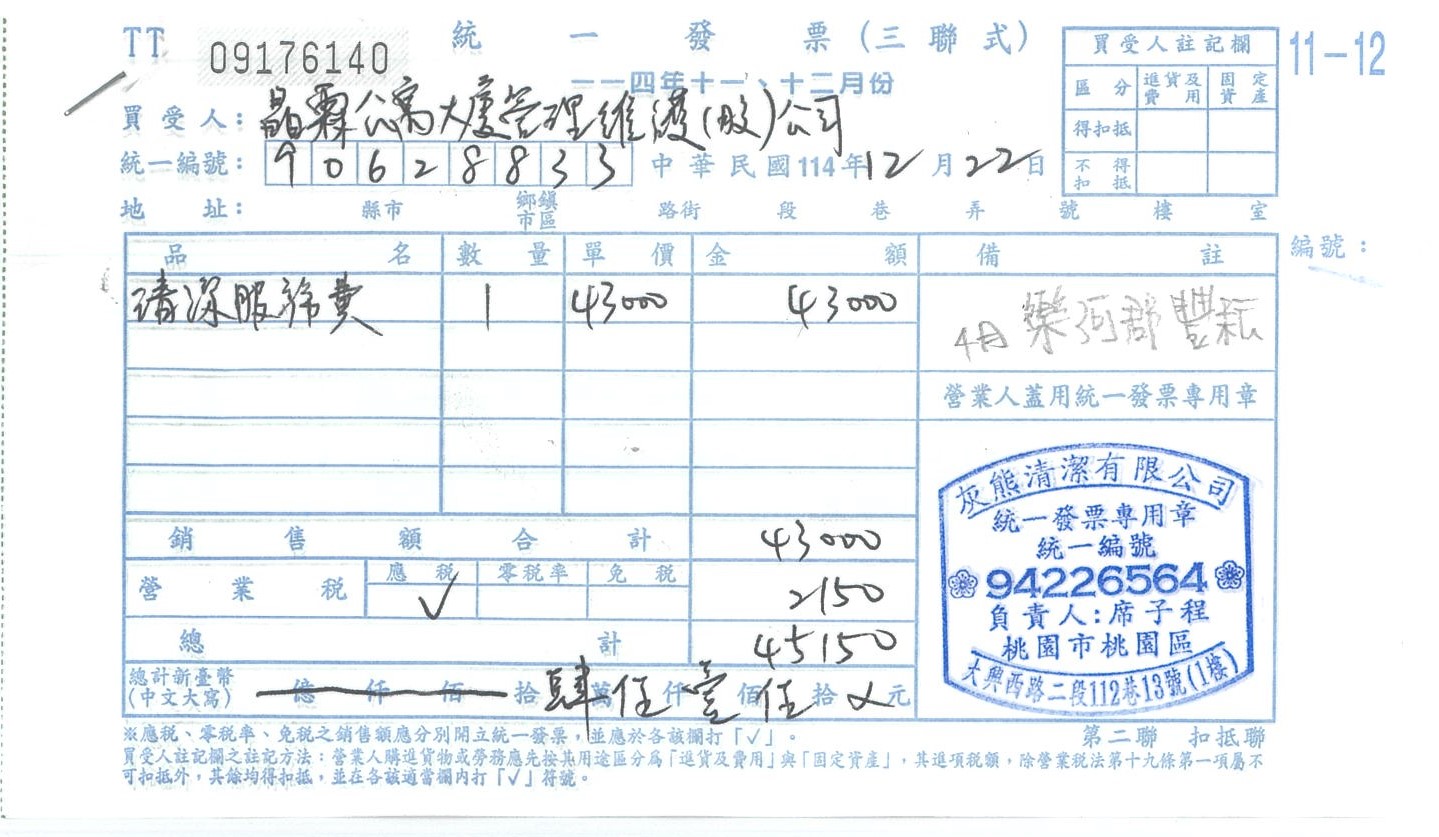 TT 09176140 統一發票(三聯式)
一一四年十一、十二月份
11-12
買受人註記欄
區分 進貨及費用 固定資產
得扣抵
不得扣抵
買受人：晶霖公寓大廈管理維護(股)公司
統一編號：90628833 中華民國114年12月22日
地址： 縣市 鄉鎮市區 路街 段 巷 弄 號 樓 室
編號：
品名 數量 單價 金額 備註
清潔服務費 1 43000 43000
4月 樂河郡 豐耘
營業人蓋用統一發票專用章
銷售額合計 43000
營業稅 應稅 零稅率 免稅
✓ 2150
總計 45150
總計新臺幣(中文大寫) 億仟佰拾肆萬伍仟壹佰伍拾 元
灰熊清潔有限公司
統一發票專用章
統一編號
94226564
負責人:席子程
桃園市桃園區
大興西路二段112巷13號(1樓)
※應稅、零稅率、免稅之銷售額應分別開立統一發票，並應於各該欄打「✓」。
第二聯 扣抵聯
買受人註記欄之註記方法：營業人購進貨物或勞務應先按其用途區分為「進貨及費用」與「固定資產」，其進項稅額，除營業稅法第十九條第一項屬不
可扣抵外，其餘均得扣抵，並在各該適當欄內打「✓」符號。